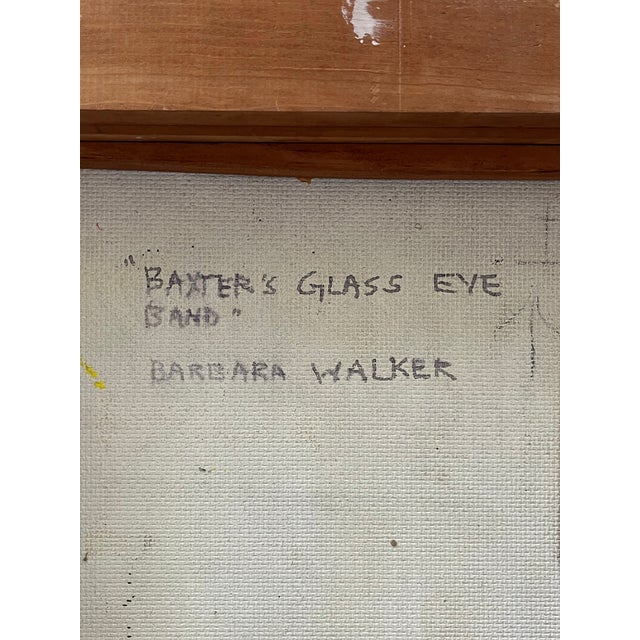 "BAXTER'S GLASS EYE
BAND"
BARBARA WALKER